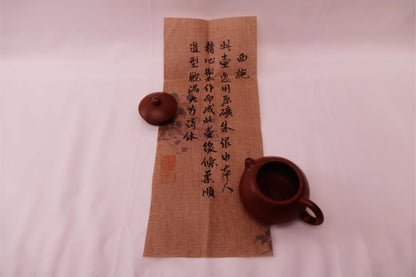 西施
此壶选用原礦朱泥由本人
精心製作而成此壶缐條柔顺
造型飽满大方得体